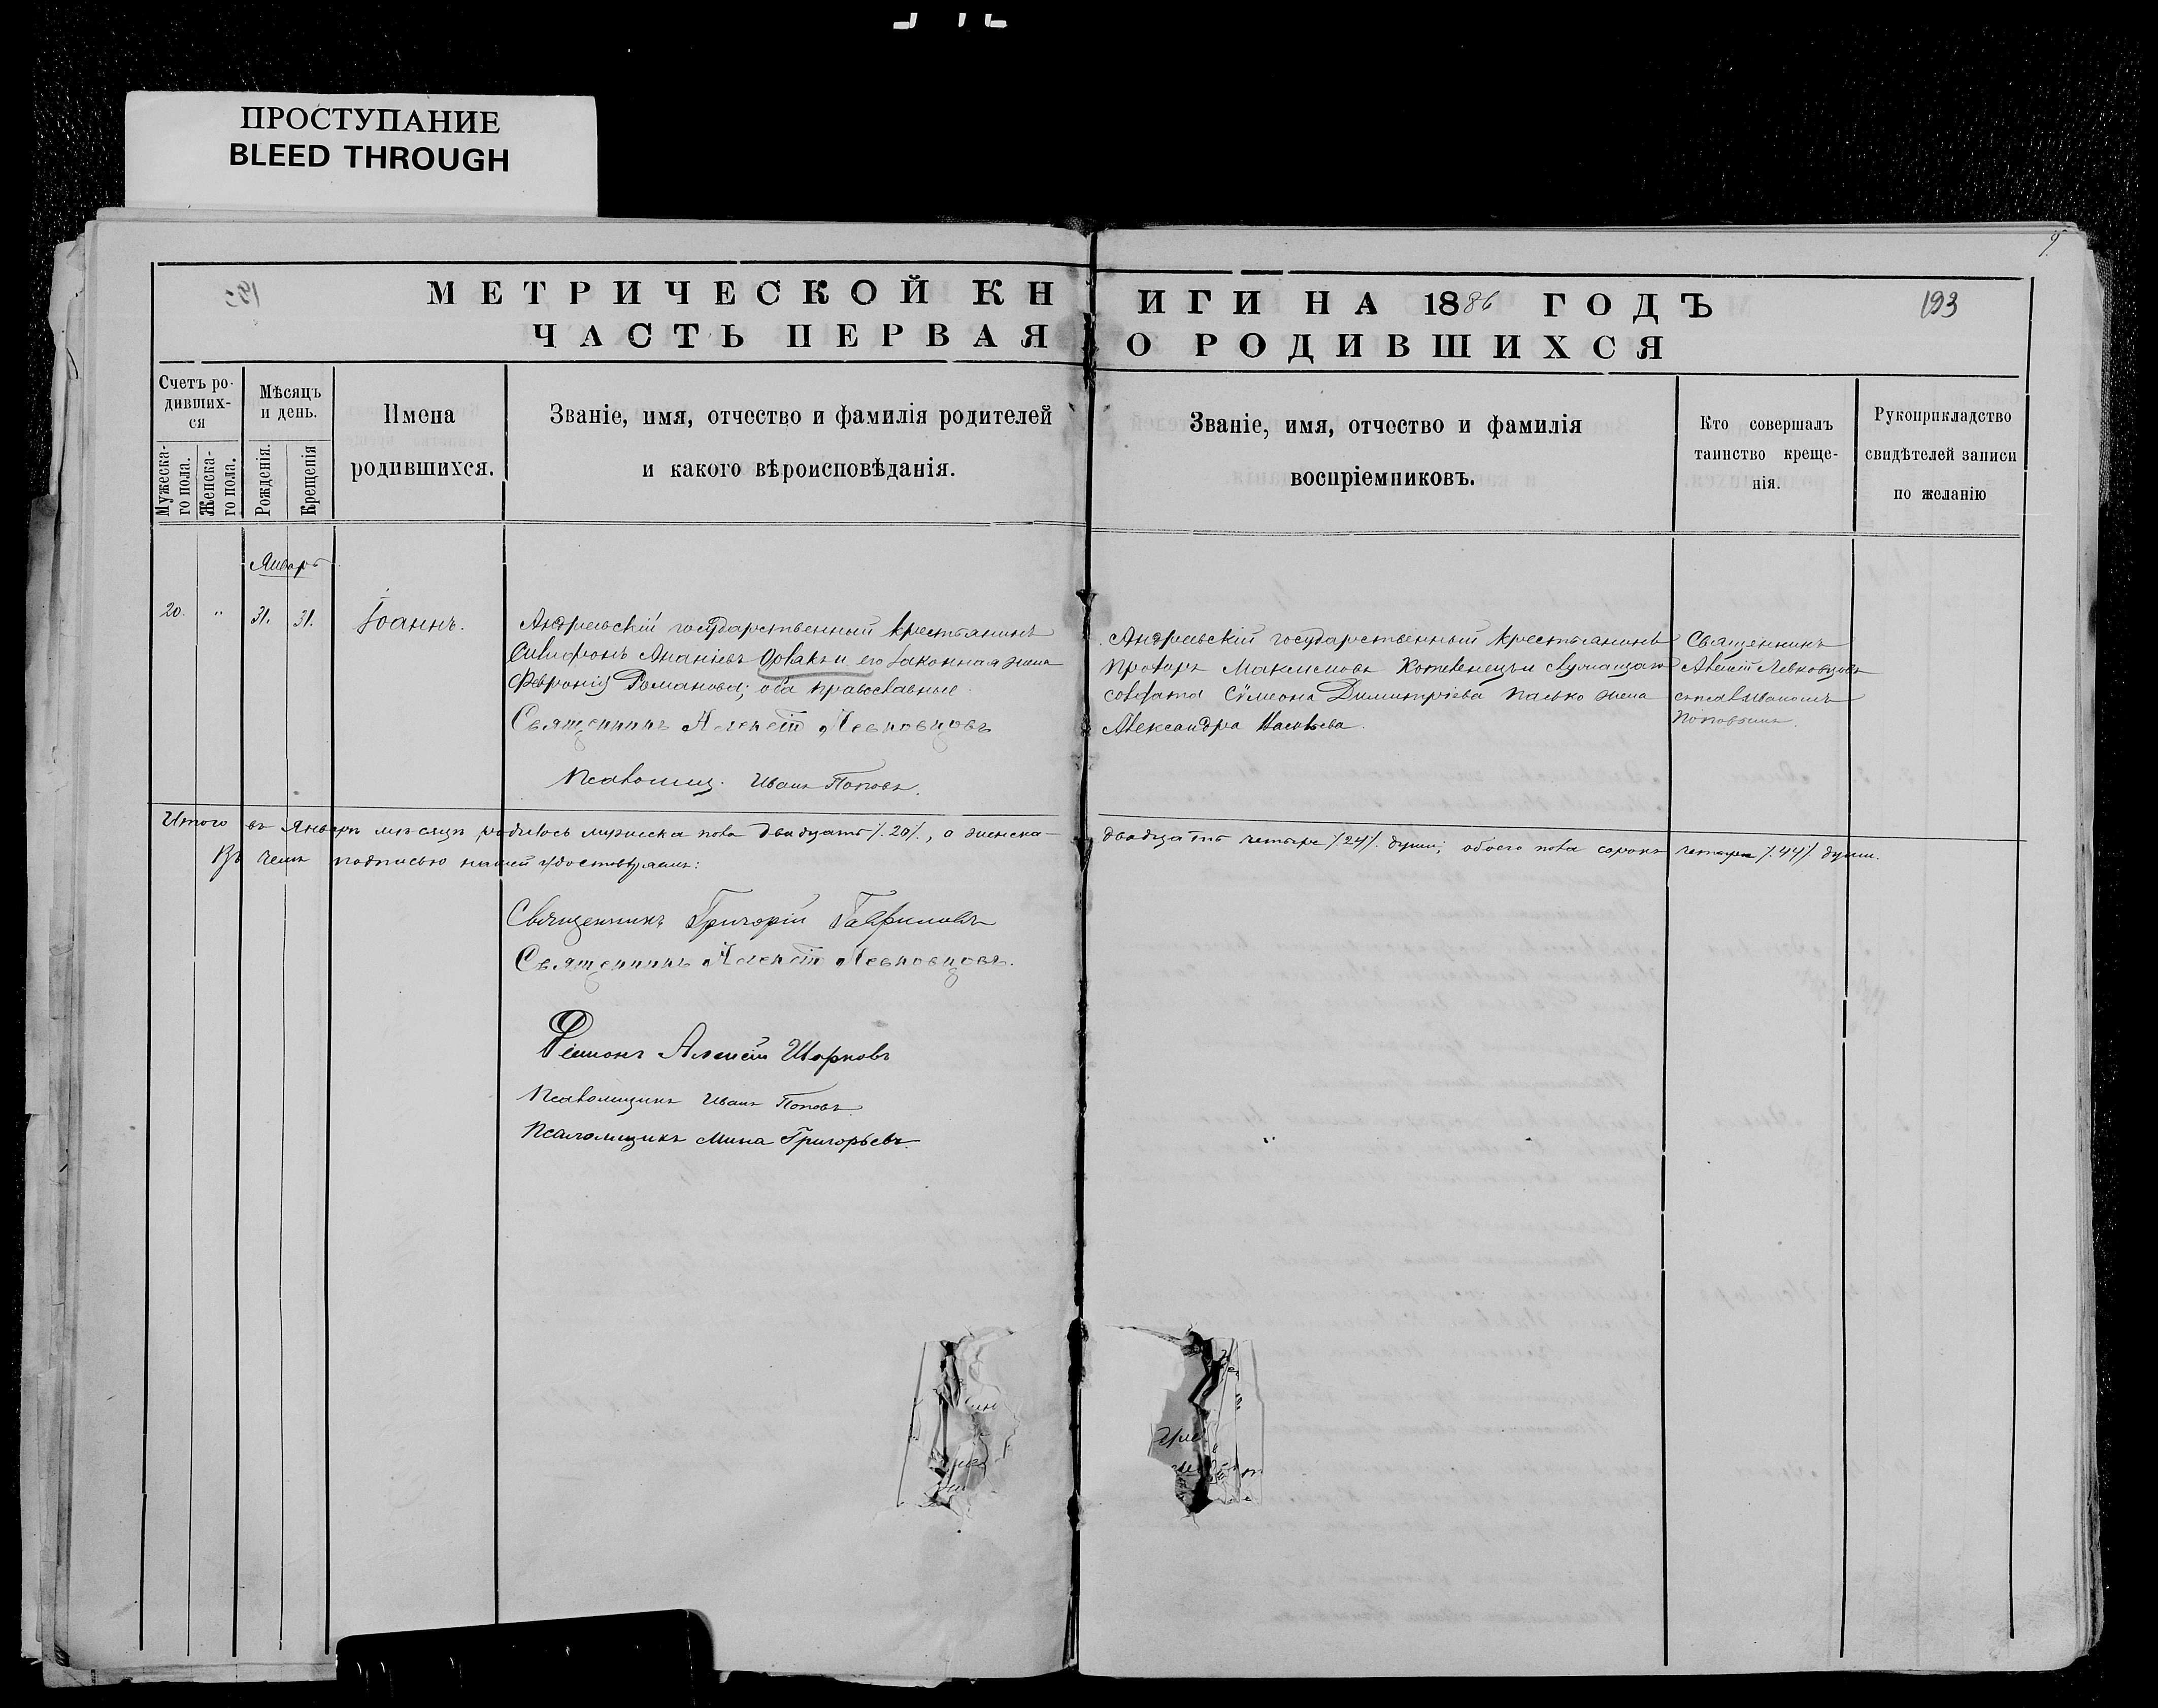 ПРОСТУПАНИЕ
BLEED THROUGH
9.
193
МЕТРИЧЕСКОЙ КНИГИ НА 1886 ГОДЪ
ЧАСТЬ ПЕРВАЯ О РОДИВШИХСЯ
Счетъ ро-
дивших-
ся
Мужеска-
го пола.
Женска-
го пола.
Мѣсяцъ
и день.
Рожденія.
Крещенія
Имена
родившихся.
Званіе, имя, отчество и фамилія родителей
и какого вѣроисповѣданія.
Званіе, имя, отчество и фамилія
воспріемниковъ.
Кто совершалъ
таинство креще-
нія.
Рукоприкладство
свидѣтелей записи
по желанію
Январь
20. " 31. 31.
Іоаннъ.
Андреевскій государственный крестьянинъ
Ананіевъ Орлякъ и его законная жена
Февронія Романова; оба православные.
Священникъ Алексій Левковцовъ
Псаломщ. Иванъ Поповъ.
Андреевскій государственный крестьянинъ
Прохоръ Максимовъ и служащаго
солдата Сѵмеона Димитріева Палько жена
Александра
Священникъ
Алексій Левковцовъ
съ псал. Иваномъ
Поповымъ.
Итого въ Январѣ мѣсяцѣ родилось мужеска пола двадцать /.20/., а женска двадцать четыре /.24/. души; обоего пола сорокъ четыре /.44/. души.
Въ чемъ подписью нашей удостовѣряемъ:
Священникъ Григорій Гавриловъ
Священникъ Алексій Левковцовъ.
Діаконъ Алексій Шарковъ
Псаломщикъ Иванъ Поповъ.
Псаломщикъ Мина Григорьевъ.